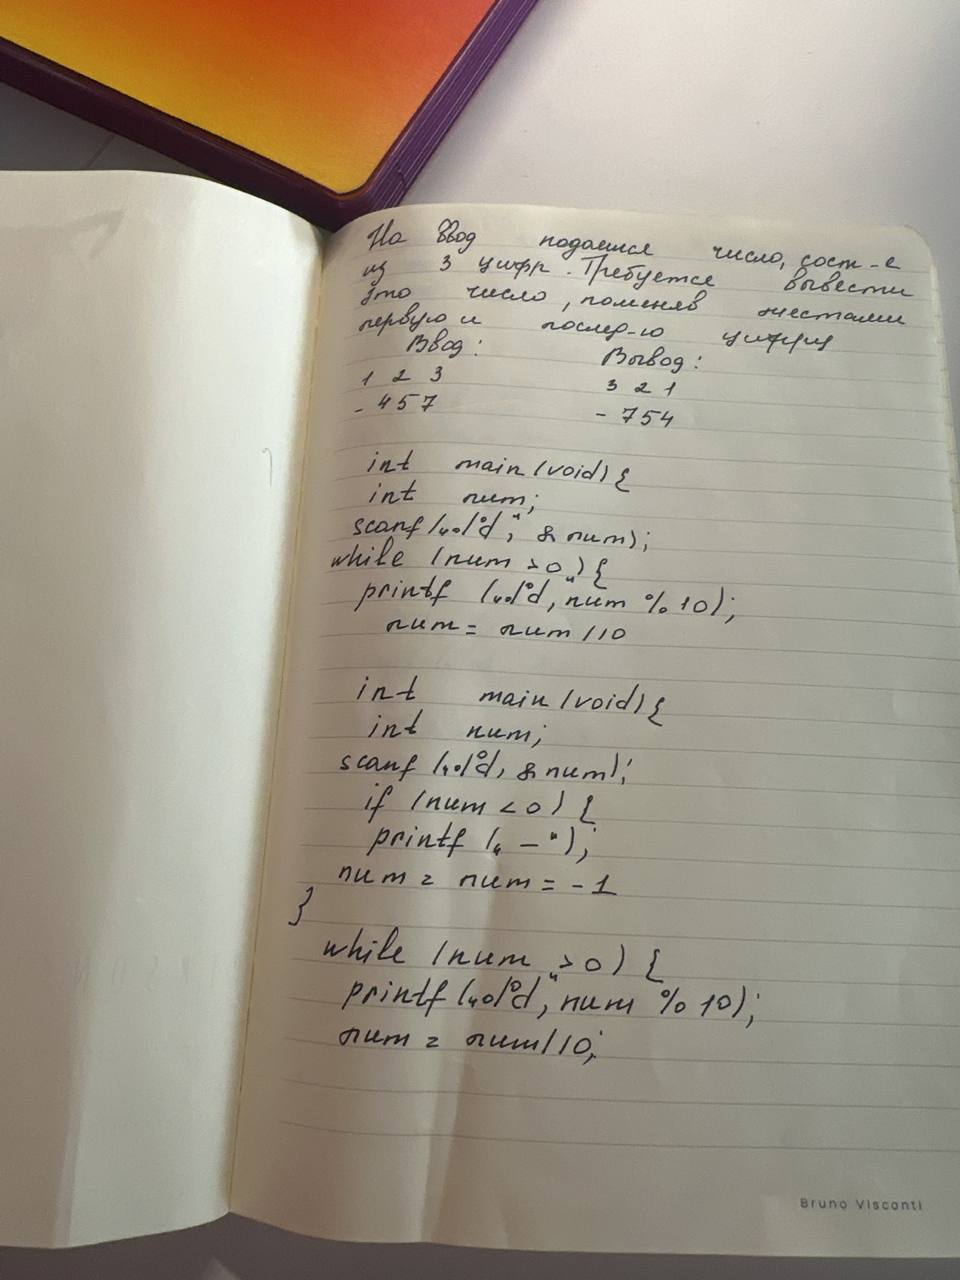 На ввод подается число, сост-е
из 3 цифр. Требуется вывести
это число, поменяв местами
первую и послед-ю цифры
Ввод: Вывод:
1 2 3 3 2 1
- 457 - 754
int main(void){
int num;
scanf("%d", &num);
while (num > 0) {
printf ("%d", num % 10);
num = num /10
int main(void){
int num;
scanf("%d, &num);
if (num < 0) {
printf (" - ");
num = num = -1
}
while (num > 0) {
printf("%d", num % 10);
num = num/10;
Bruno Visconti